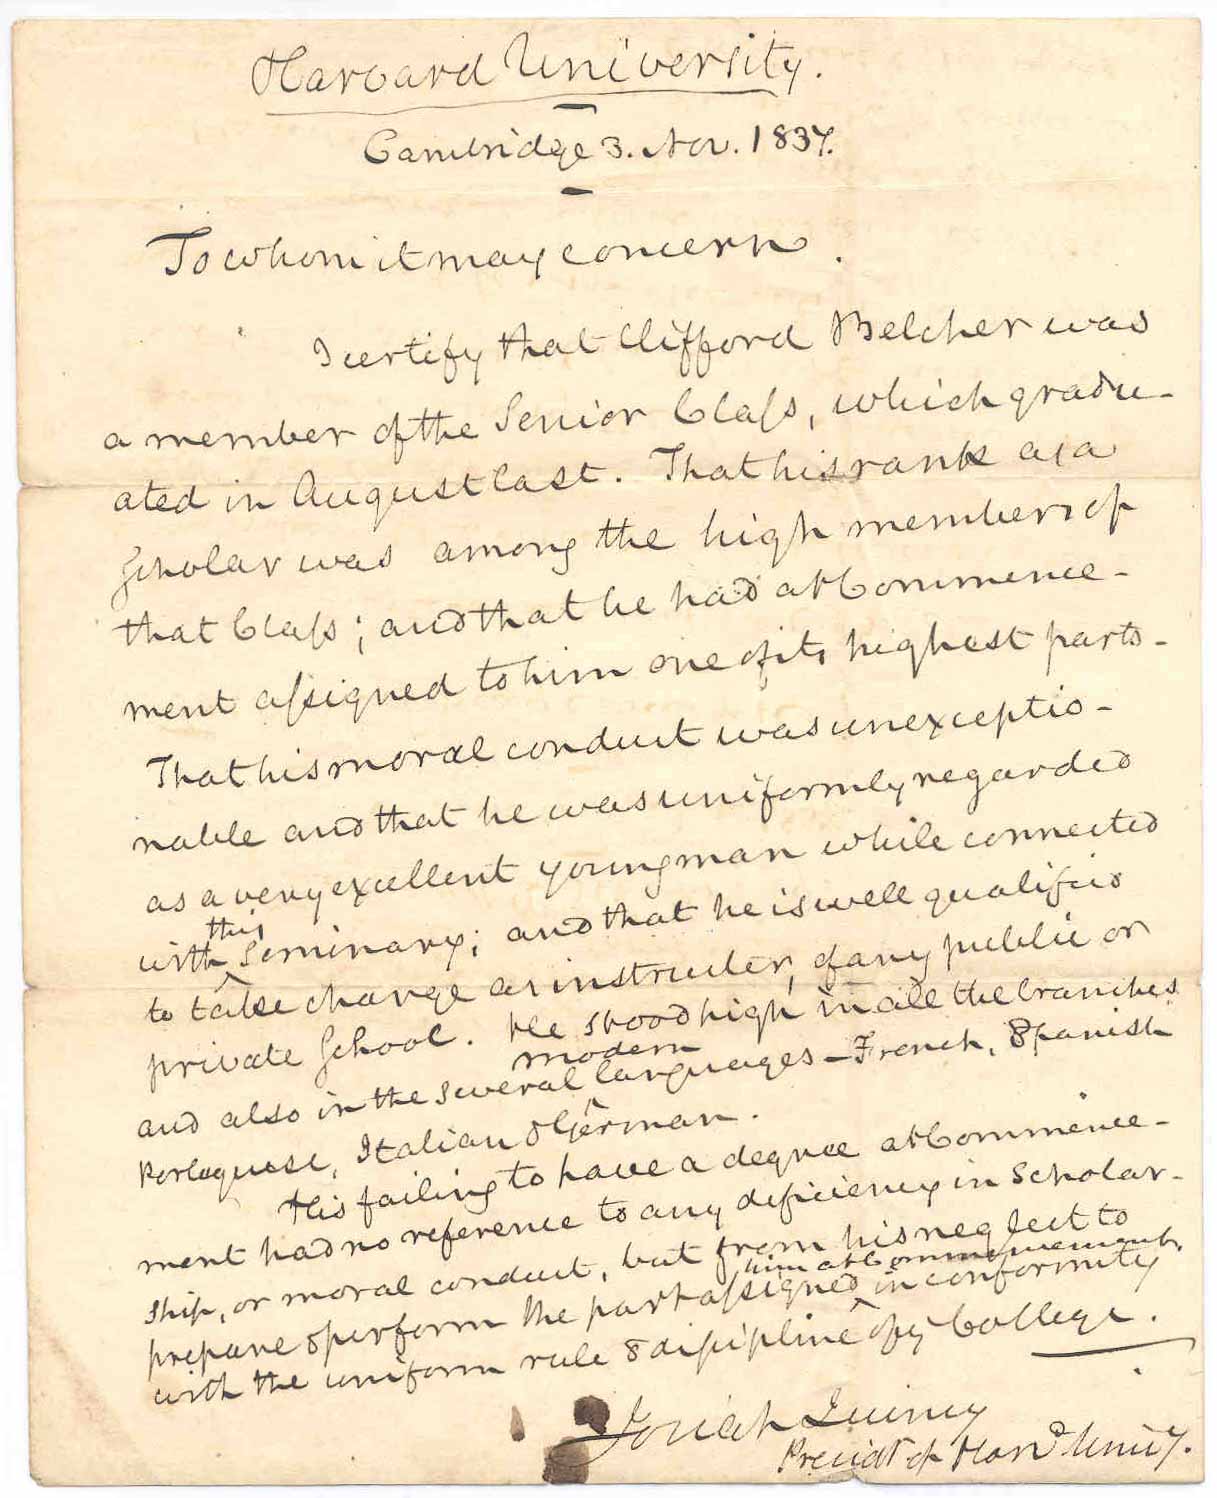 Harvard University.
Cambridge 3. Nov. 1837.
To whom it may concern.
I certify that Clifford Belcher was
a member of the Senior Claſs, which gradu-
ated in August last. That his rank as a
Scholar was among the high members of
that Claſs; and that he had at Commence-
ment aſsigned to him one of its highest parts-
That his moral conduct was unexceptio-
nable and that he was uniformly regarded
as a very excellent young man while connected
this
with Seminary; and that he is well qualified
to take charge as instructer, of any public or
private School. He stood high in all the branches
modern
and also in the several languages - French, Spanish
Portuguese, Italian & German.
His failing to have a degree at Commence-
ment had no reference to any deficiency in Scholar-
ship, or moral conduct, but from his neglect to
him at Commencement,
prepare & perform the part aſsigned in conformity
with the uniform rule & discipline of yᵉ College.
Josiah Quincy
Presidt of Harvd Univy.